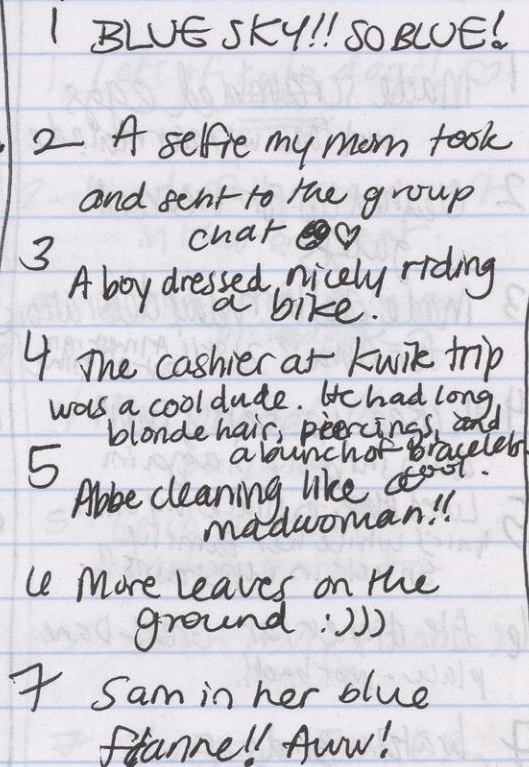 1 BLUE SKY!! SO BLUE!
2 A selfie my mom took
and sent to the group
chat ♡
3 A boy dressed nicely riding
a bike.
4 The cashier at Kwik trip
was a cool dude. He had long
blonde hair, piercings, and
a bunch of bracelets
cool.
5 Abbe cleaning like a
madwoman!!
6 More leaves on the
ground :)))
7 Sam in her blue
flannel!! Aww!